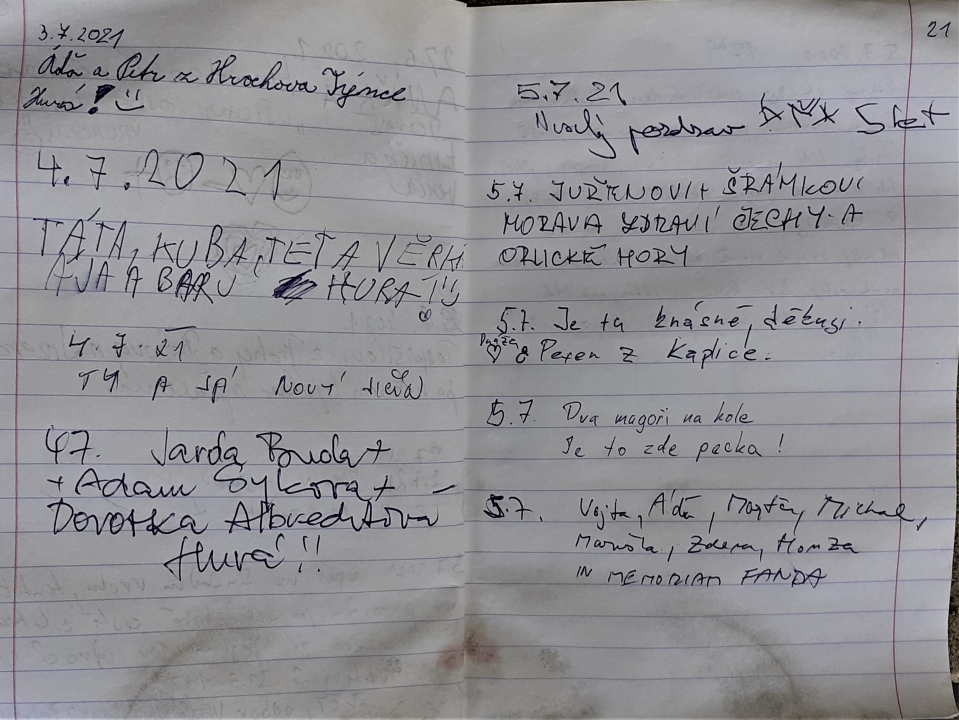 3.7.2021
Áďa a Petr z Hrochova Týnce
Hurá!
4.7.2021
TÁTA, KUBA, TETA VĚRA
AJA A BARU HURÁ!!
4.7.21
TY A JÁ NOVÝ
4.7. Jarda Buda +
+ Adam Sýkora +
Dorotka Albrechtova
Hurá!!
21
5.7.21
Veselý pozdrav 5 let
5.7. JUŘENOVI + ŠRÁMKOVI
MORAVA ZDRAVÍ ČECHY A
ORLICKÉ HORY
5.7. Je tu krásně, děkuji.
Pepen z Kaplice.
5.7. Dva magoři na kole
Je to zde pecka!
5.7. Vojta, Áďa, Michal,
Zdena, Honza
IN MEMORIAM FANDA